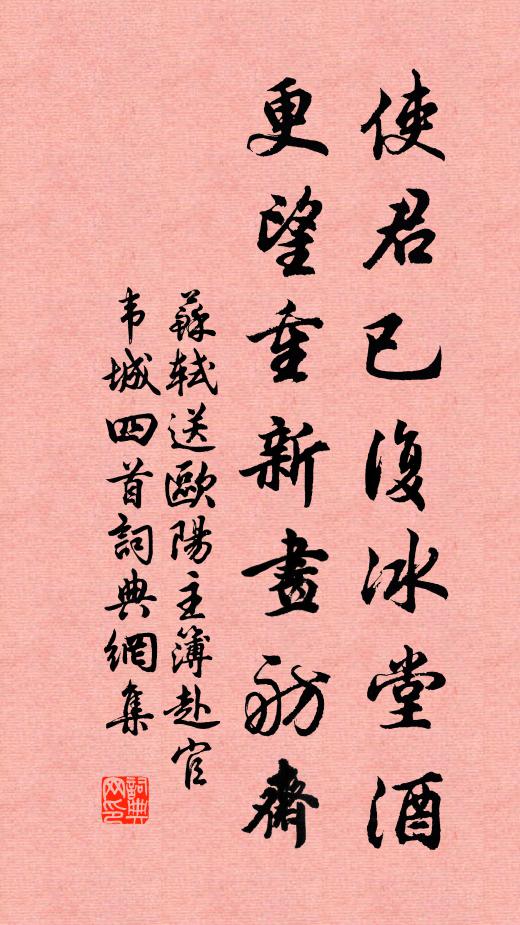 使君已復冰堂酒
更望重新畫舫齋
蘇軾送歐陽主簿赴官
韦城四首詞典網集
詞典
网印